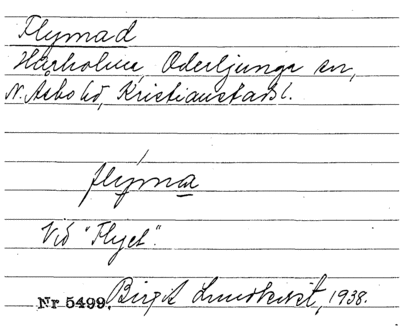 Flymad
Hårholma, Oderljunga sn,
N. Åsbo hd, Kristianstads l.
flýma
Vid "Flyet".
Nr 5499. Birgit Lundkvist, 1938.